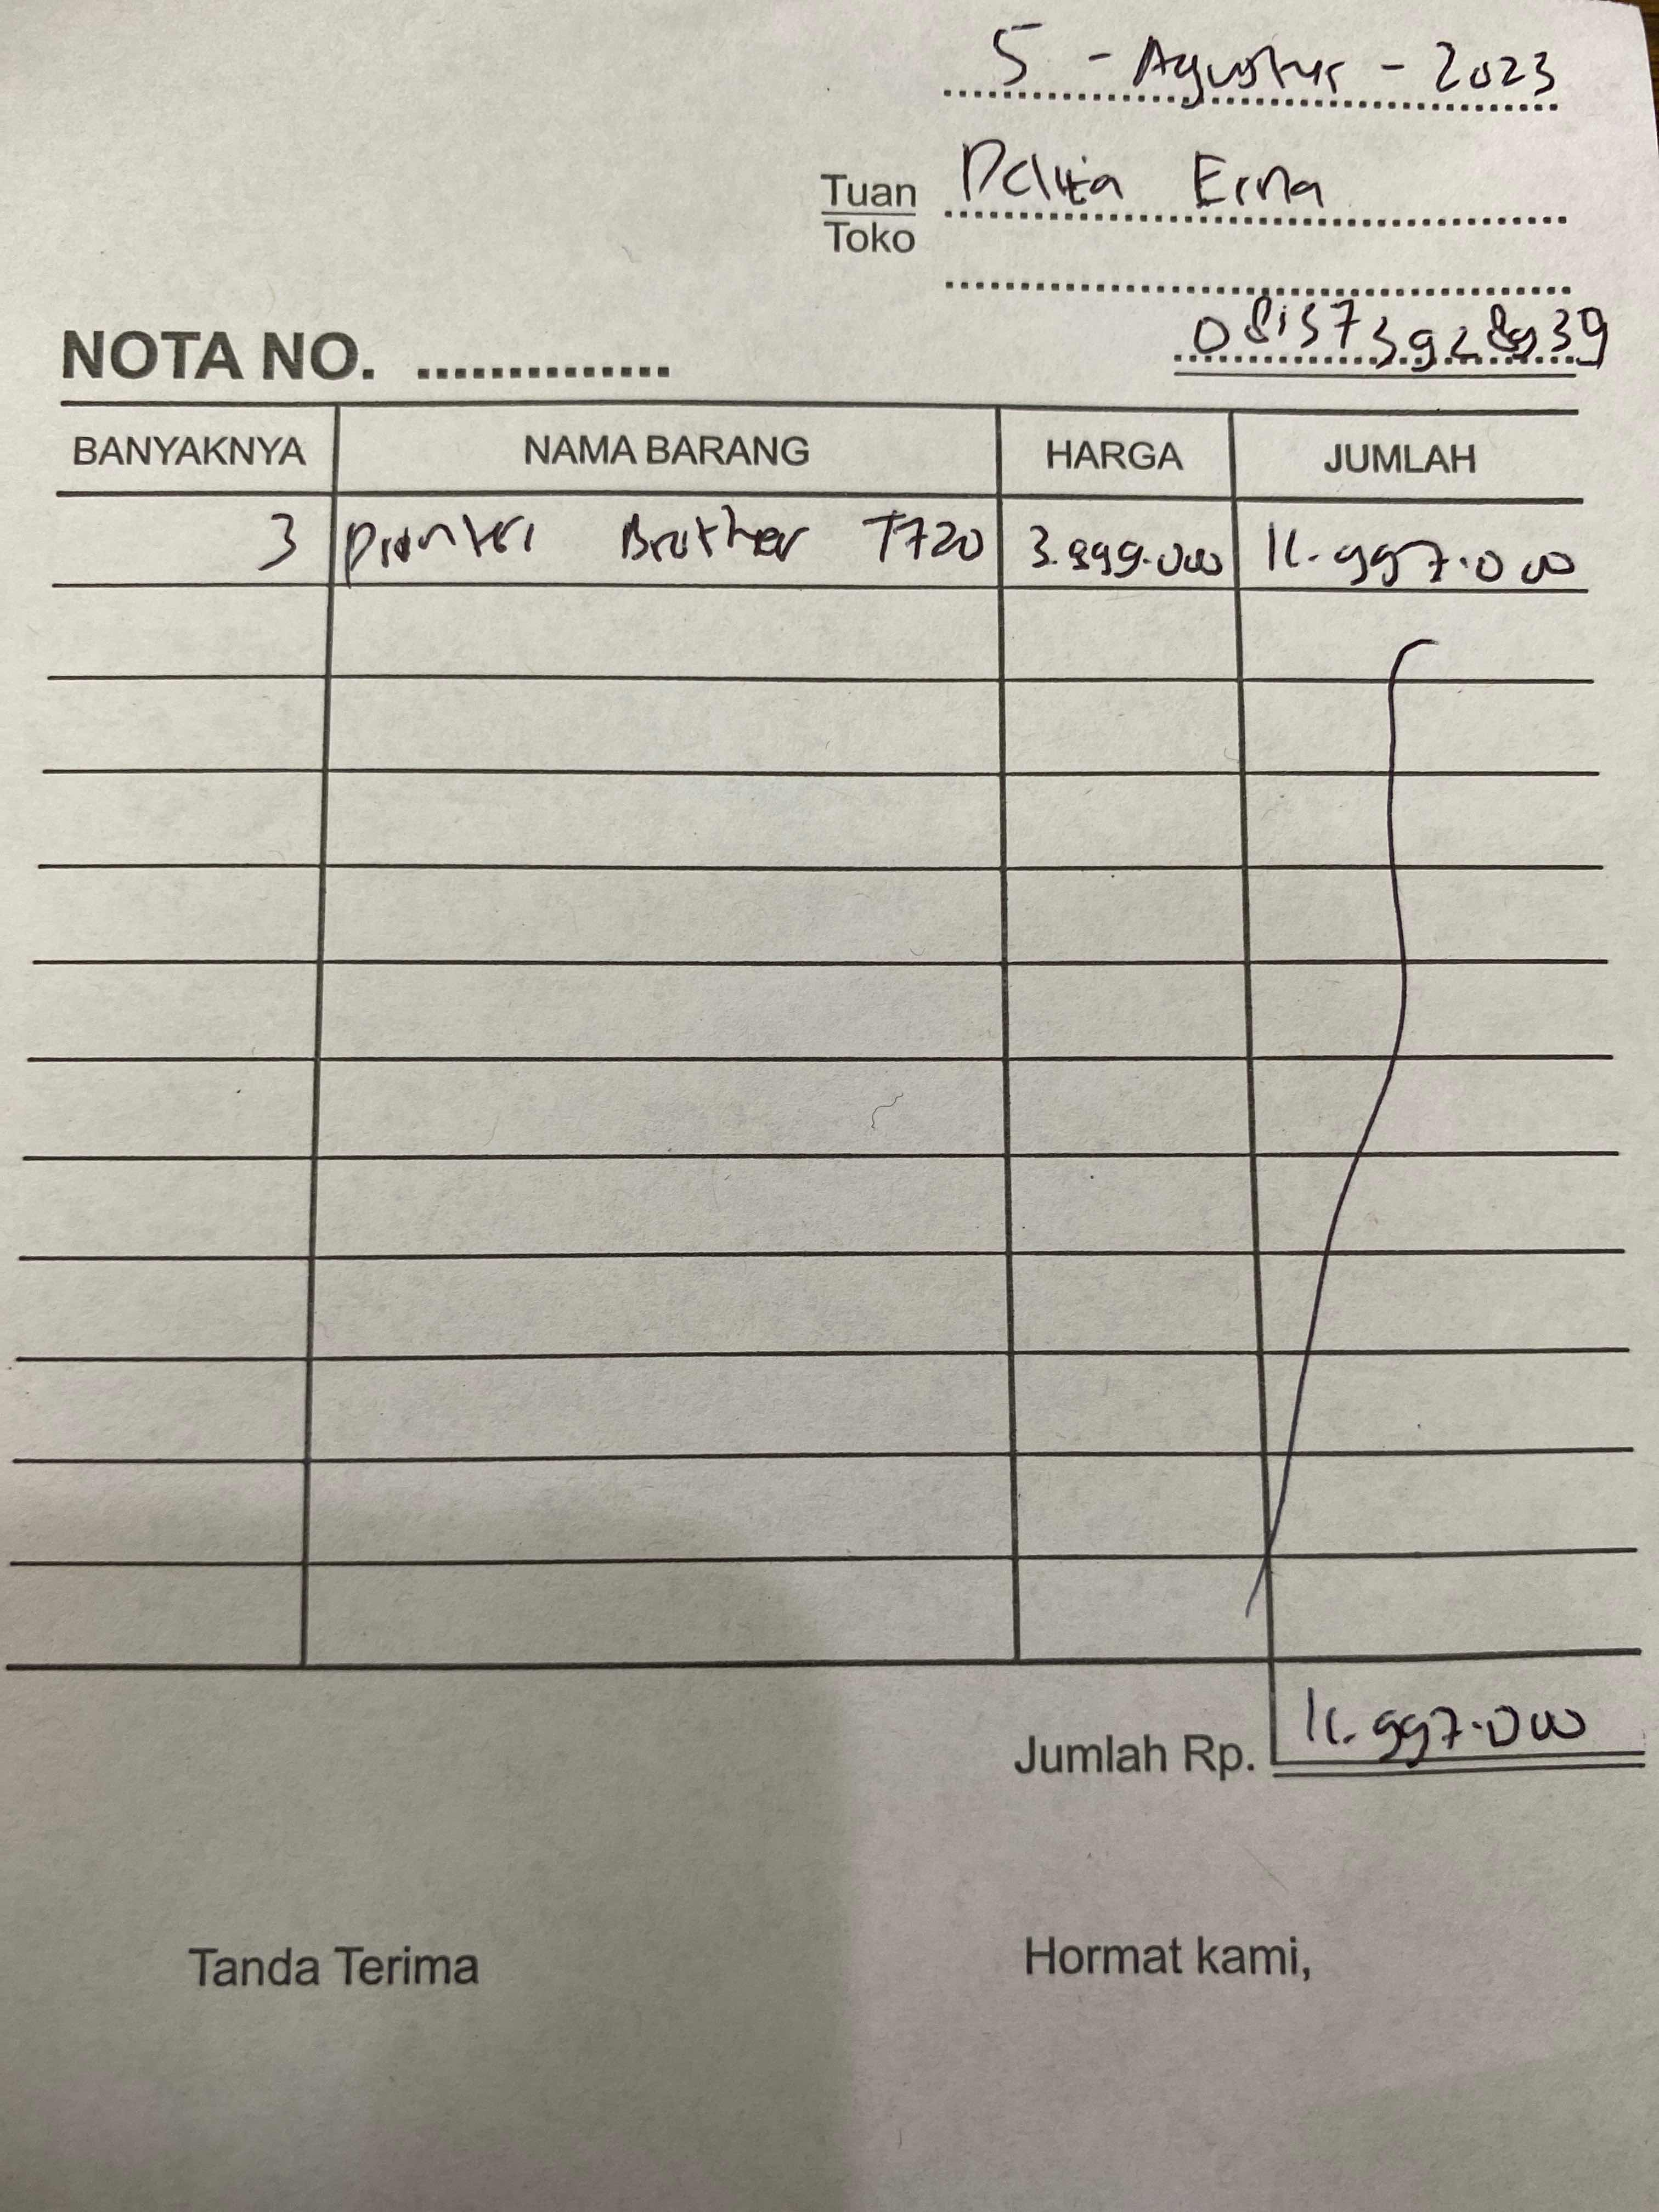 5 - Agustus - 2023
Tuan Delita Erna
Toko
NOTA NO. ..............
BANYAKNYA NAMA BARANG HARGA JUMLAH
3 Printer Brother T720 3.999.000 11.997.000
Jumlah Rp. 11.997.000
Tanda Terima Hormat kami,